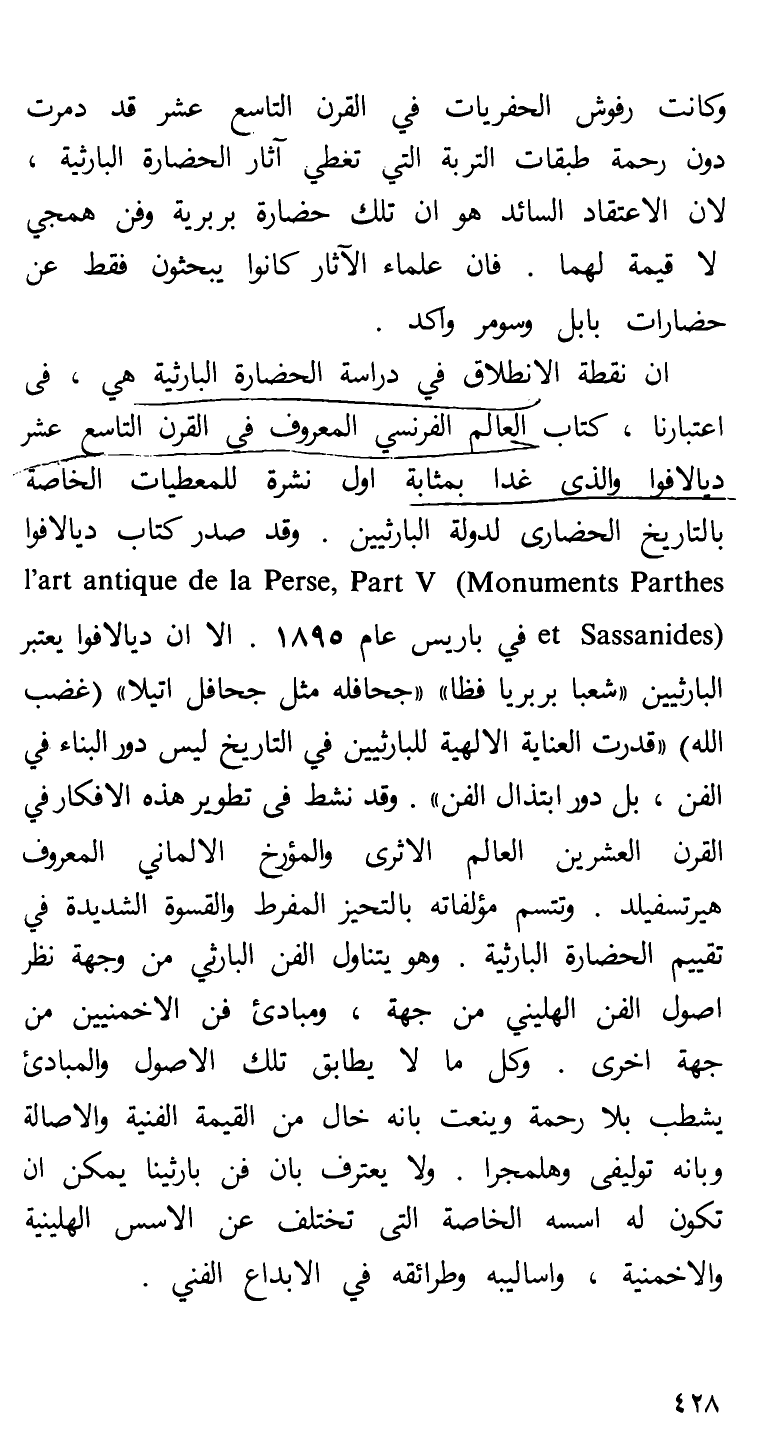 وكانت رفوش الحفريات في القرن التاسع عشر قد دمرت
دون رحمة طبقات التربة التي تغطي آثار الحضارة البارثية ،
لان الاعتقاد السائد هو ان تلك حضارة بربرية وفن همجي
لا قيمة لهما . فان علماء الآثار كانوا يبحثون فقط عن
حضارات بابل وسومر واكد .
ان نقطة الانطلاق في دراسة الحضارة البارثية هي ، فى
اعتبارنا ، كتاب العالم الفرنسي المعروف في القرن التاسع عشر
ديالافوا والذى غدا بمثابة اول نشرة للمعطيات الخاصة
بالتاريخ الحضارى لدولة البارثيين . وقد صدر كتاب ديالافوا
l'art antique de la Perse, Part V (Monuments Parthes
et Sassanides) في باريس عام ١٨٩٥ . الا ان ديالافوا يعتبر
البارثيين «شعبا بربريا فظا» «جحافله مثل جحافل اتيلا» (غضب
الله) «قدرت العناية الالهية للبارثيين في التاريخ ليس دور البناء في
الفن ، بل دور ابتذال الفن» . وقد نشط فى تطوير هذه الافكار في
القرن العشرين العالم الاثرى والمؤرخ الالماني المعروف
هيرتسفيلد . وتتسم مؤلفاته بالتحيز المفرط والقسوة الشديدة في
تقييم الحضارة البارثية . وهو يتناول الفن البارثي من وجهة نظر
اصول الفن الهليني من جهة ، ومبادئ فن الاخمنيين من
جهة اخرى . وكل ما لا يطابق تلك الاصول والمبادئ
يشطب بلا رحمة وينعت بانه خال من القيمة الفنية والاصالة
وبانه توليفى وهلمجرا . ولا يعترف بان فن بارثينا يمكن ان
تكون له اسسه الخاصة التى تختلف عن الاسس الهلينية
والاخمنية ، واساليبه وطرائقه في الابداع الفني .
٤٢٨